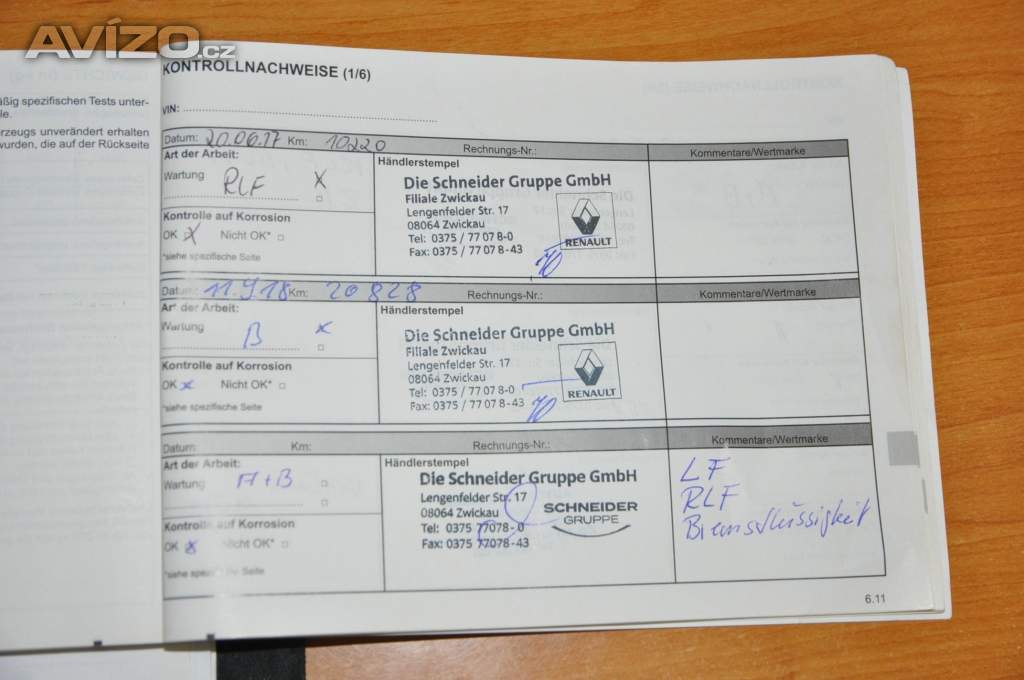 AVÍZO.cz
KONTROLLNACHWEISE (1/6)
äßig spezifischen Tests unter-
le.
rzeugs unverändert erhalten
wurden, die auf der Rückseite
VIN:
Datum: 20.06.17 Km: 10220 Rechnungs-Nr.: Kommentare/Wertmarke
Art der Arbeit: Händlerstempel
Wartung RLF X
Die Schneider Gruppe GmbH
Filiale Zwickau
Lengenfelder Str. 17
08064 Zwickau
Tel: 0375 / 77 07 8-0
Fax: 0375 / 77 07 8-43
RENAULT
Kontrolle auf Korrosion
OK X Nicht OK*
*siehe spezifische Seite
Datum: 11.9.18 Km: 20828 Rechnungs-Nr.: Kommentare/Wertmarke
Art der Arbeit: Händlerstempel
Wartung B x
Die Schneider Gruppe GmbH
Filiale Zwickau
Lengenfelder Str. 17
08064 Zwickau
Tel: 0375 / 77 07 8-0
Fax: 0375 / 77 07 8-43
RENAULT
Kontrolle auf Korrosion
OK x Nicht OK*
*siehe spezifische Seite
Datum: Km: Rechnungs-Nr.: Kommentare/Wertmarke
Art der Arbeit: Händlerstempel
Wartung A+B
Die Schneider Gruppe GmbH
Lengenfelder Str. 17
08064 Zwickau
Tel: 0375 77078-0
Fax: 0375 77078-43
SCHNEIDER
GRUPPE
LF
RLF
Bremsflüssigkeit
Kontrolle auf Korrosion
OK x Nicht OK*
*siehe spezifische Seite
6.11